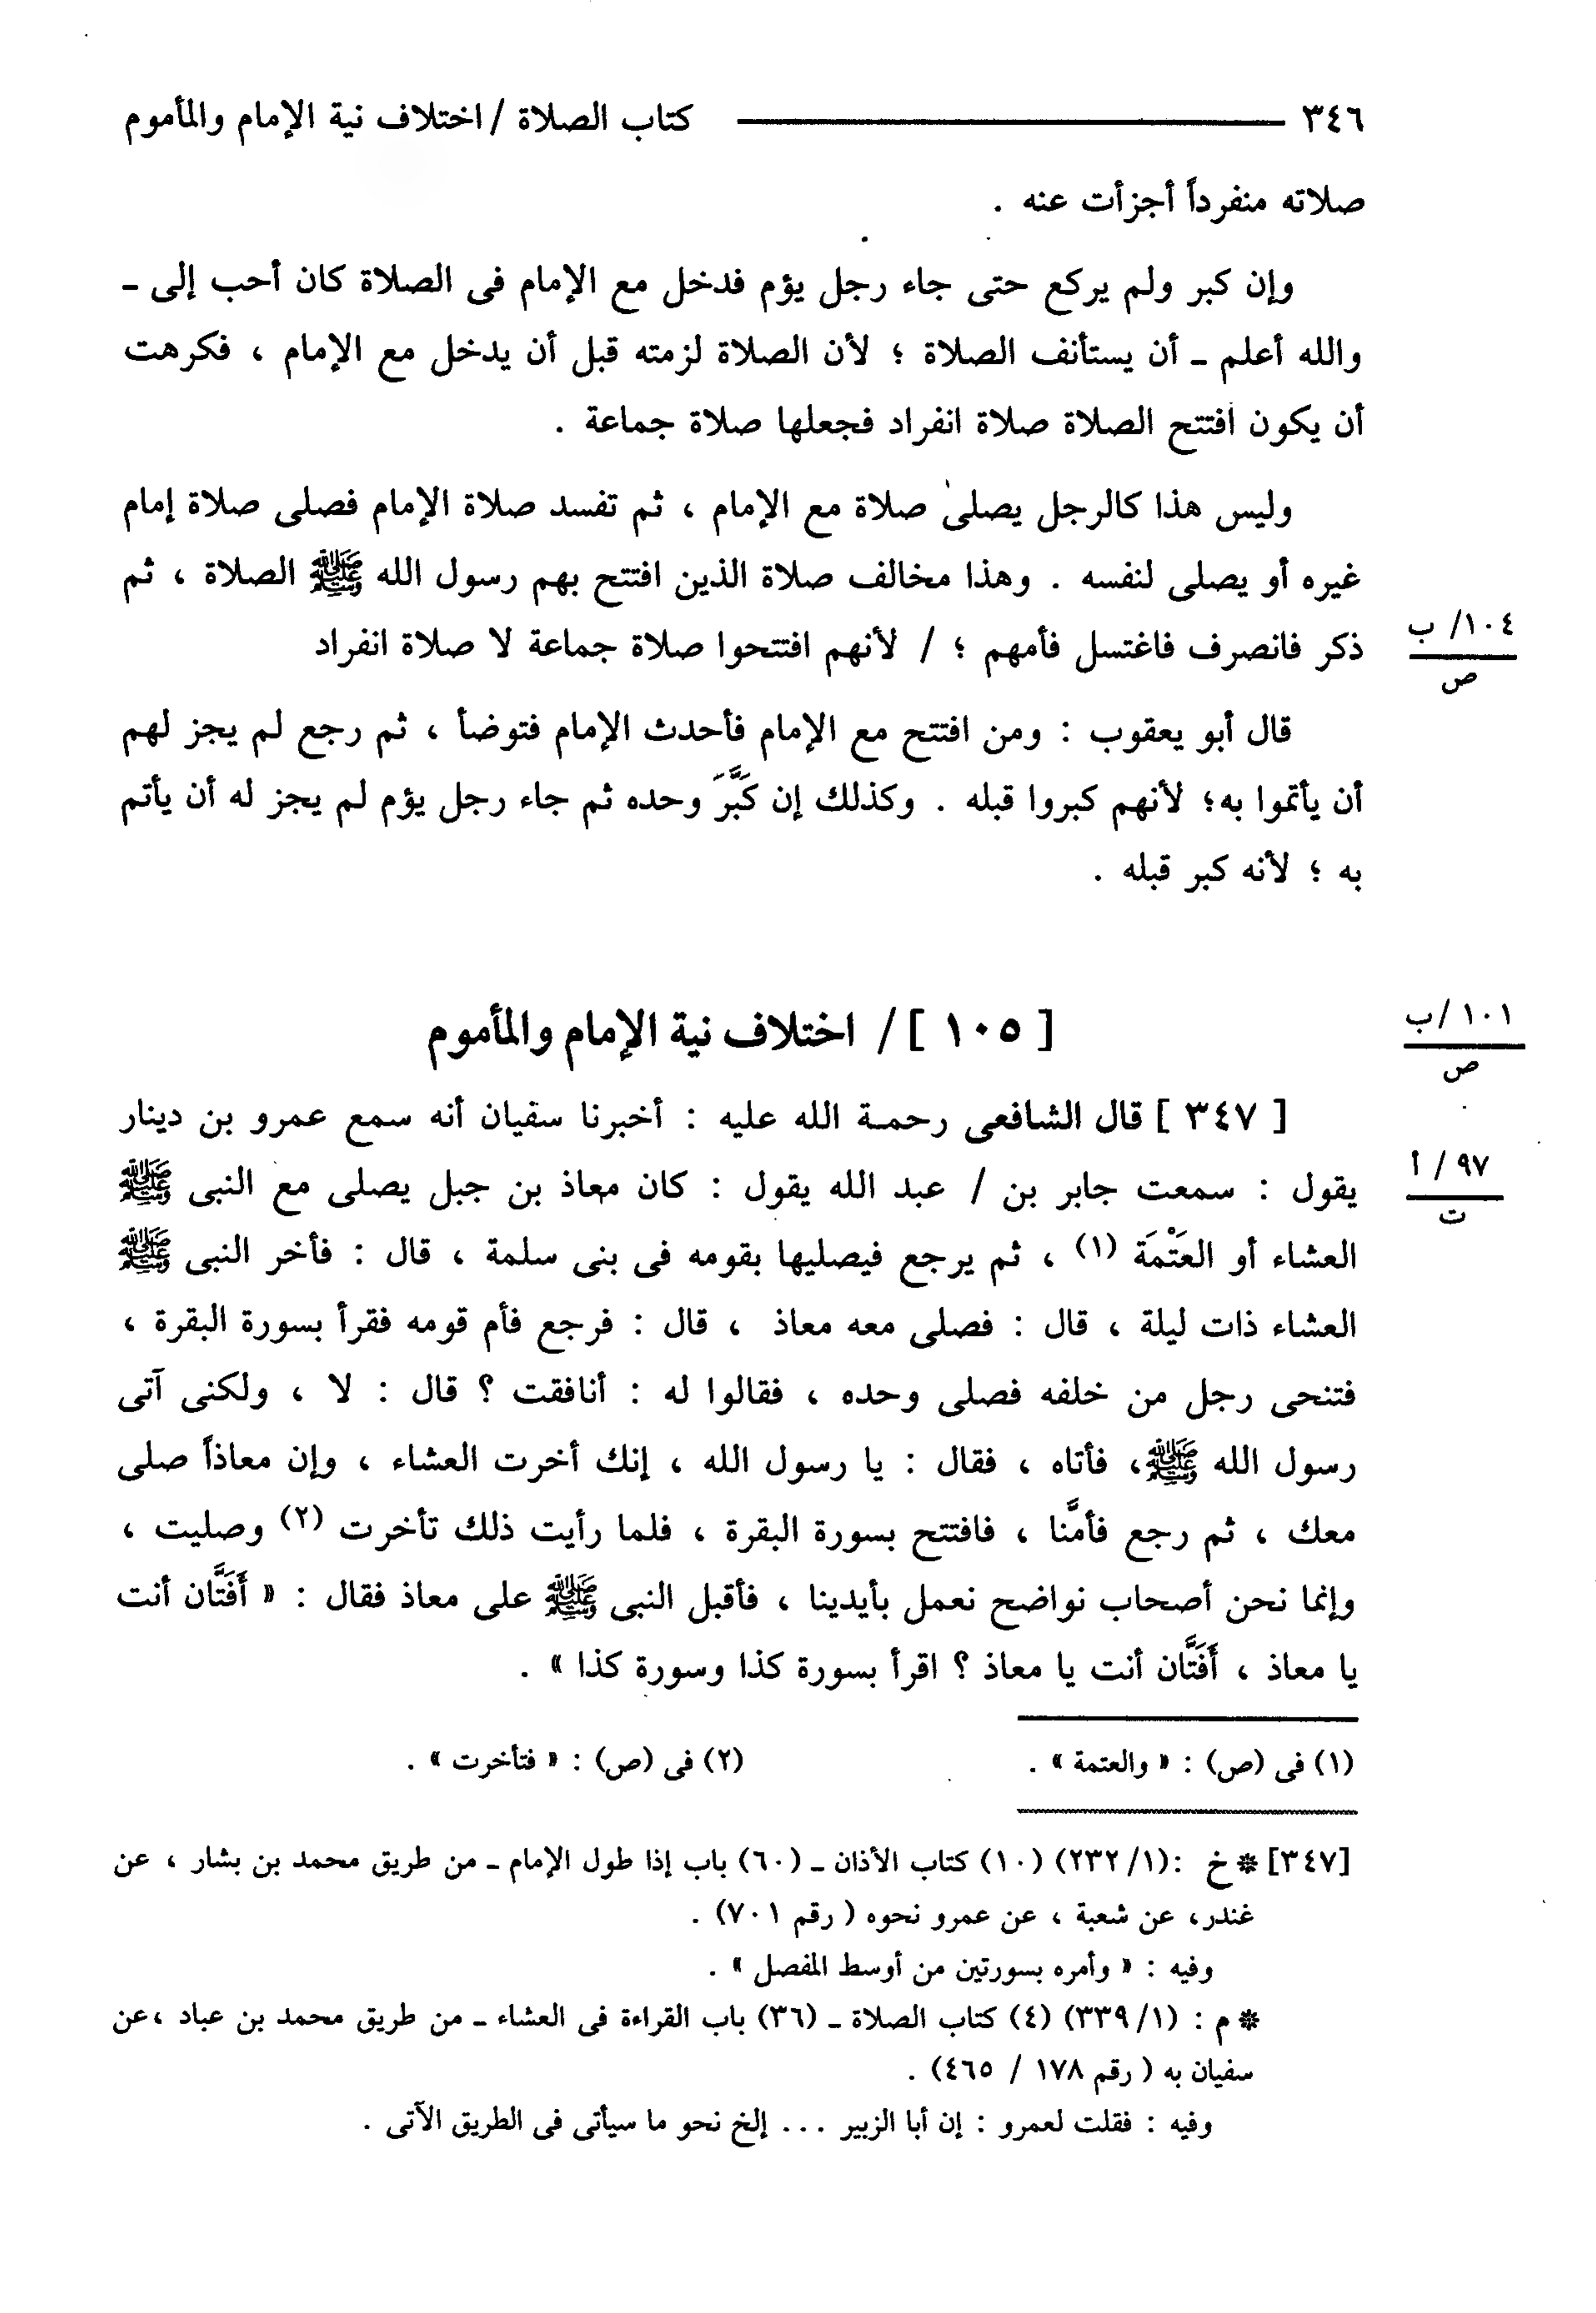 ٣٤٦ ــــــــــــــــ كتاب الصلاة / اختلاف نية الإمام والمأموم
صلاته منفرداً أجزأت عنه .
وإن كبر ولم يركع حتى جاء رجل يؤم فدخل مع الإمام فى الصلاة كان أحب إلى ـ
والله أعلم ـ أن يستأنف الصلاة ؛ لأن الصلاة لزمته قبل أن يدخل مع الإمام ، فكرهت
أن يكون افتتح الصلاة صلاة انفراد فجعلها صلاة جماعة .
وليس هذا كالرجل يصلى صلاة مع الإمام ، ثم تفسد صلاة الإمام فصلى صلاة إمام
غيره أو يصلى لنفسه . وهذا مخالف صلاة الذين افتتح بهم رسول الله ﷺ الصلاة ، ثم
ذكر فانصرف فاغتسل فأمهم ؛ / لأنهم افتتحوا صلاة جماعة لا صلاة انفراد
١٠٤/ ب
ص
قال أبو يعقوب : ومن افتتح مع الإمام فأحدث الإمام فتوضأ ، ثم رجع لم يجز لهم
أن يأتموا به؛ لأنهم كبروا قبله . وكذلك إن كَبَّرَ وحده ثم جاء رجل يؤم لم يجز له أن يأتم
به ؛ لأنه كبر قبله .
[ ١٠٥ ] / اختلاف نية الإمام والمأموم
١٠١ /ب
ص
[ ٣٤٧ ] قال الشافعى رحمة الله عليه : أخبرنا سفيان أنه سمع عمرو بن دينار
يقول : سمعت جابر بن / عبد الله يقول : كان معاذ بن جبل يصلى مع النبى ﷺ
٩٧ / أ
ت
العشاء أو العَتْمَة (١) ، ثم يرجع فيصليها بقومه فى بنى سلمة ، قال : فأخر النبى ﷺ
العشاء ذات ليلة ، قال : فصلى معه معاذ ، قال : فرجع فأم قومه فقرأ بسورة البقرة ،
فتنحى رجل من خلفه فصلى وحده ، فقالوا له : أنافقت ؟ قال : لا ، ولكنى آتى
رسول الله ﷺ، فأتاه ، فقال : يا رسول الله ، إنك أخرت العشاء ، وإن معاذاً صلى
معك ، ثم رجع فأمَّنا ، فافتتح بسورة البقرة ، فلما رأيت ذلك تأخرت (٢) وصليت ،
وإنما نحن أصحاب نواضح نعمل بأيدينا ، فأقبل النبى ﷺ على معاذ فقال : « أَفَتَّان أنت
يا معاذ ، أَفَتَّان أنت يا معاذ ؟ اقرأ بسورة كذا وسورة كذا » .
(١) فى (ص) : « والعتمة » . (٢) فى (ص) : « فتأخرت » .
[٣٤٧] * خ :(١/ ٢٣٢) (١٠) كتاب الأذان ـ (٦٠) باب إذا طول الإمام ـ من طريق محمد بن بشار ، عن
غندر، عن شعبة ، عن عمرو نحوه ( رقم ٧٠١) .
وفيه : « وأمره بسورتين من أوسط المفصل » .
* م : (١/ ٣٣٩) (٤) كتاب الصلاة ـ (٣٦) باب القراءة فى العشاء ـ من طريق محمد بن عباد ،عن
سفيان به ( رقم ١٧٨ / ٤٦٥) .
وفيه : فقلت لعمرو : إن أبا الزبير ... إلخ نحو ما سيأتى فى الطريق الآتى .